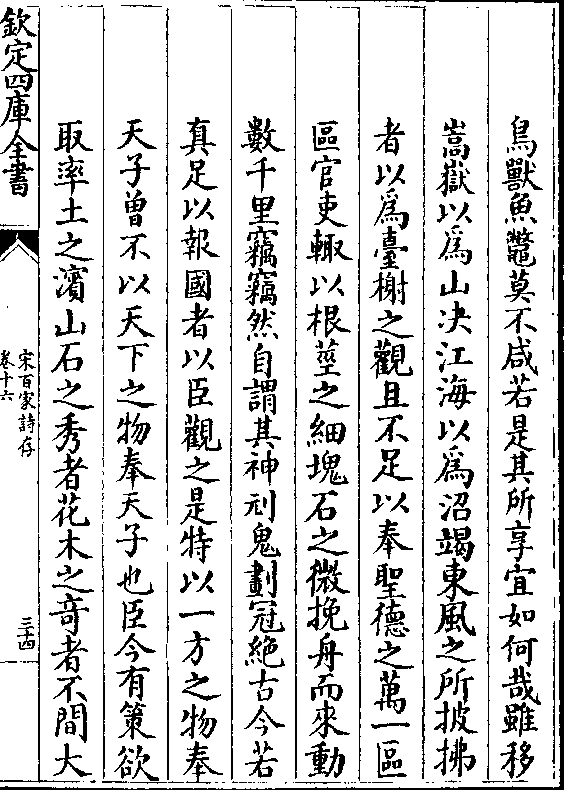 鳥獸魚鼈莫不咸若是其所享宜如何哉雖移
嵩嶽以爲山決江海以爲沼竭東風之所披拂
者以爲臺榭之觀且不足以奉聖德之萬一區
區官吏輙以根莖之細塊石之微挽舟而來動
數千里竊竊然自謂其神刓鬼劃冠絶古今若
真足以報國者以臣觀之是特以一方之物奉
天子曾不以天下之物奉天子也臣今有策欲
取率土之濱山石之秀者花木之竒者不間大
欽定四庫全書
宋百家詩存
卷十六
三十四